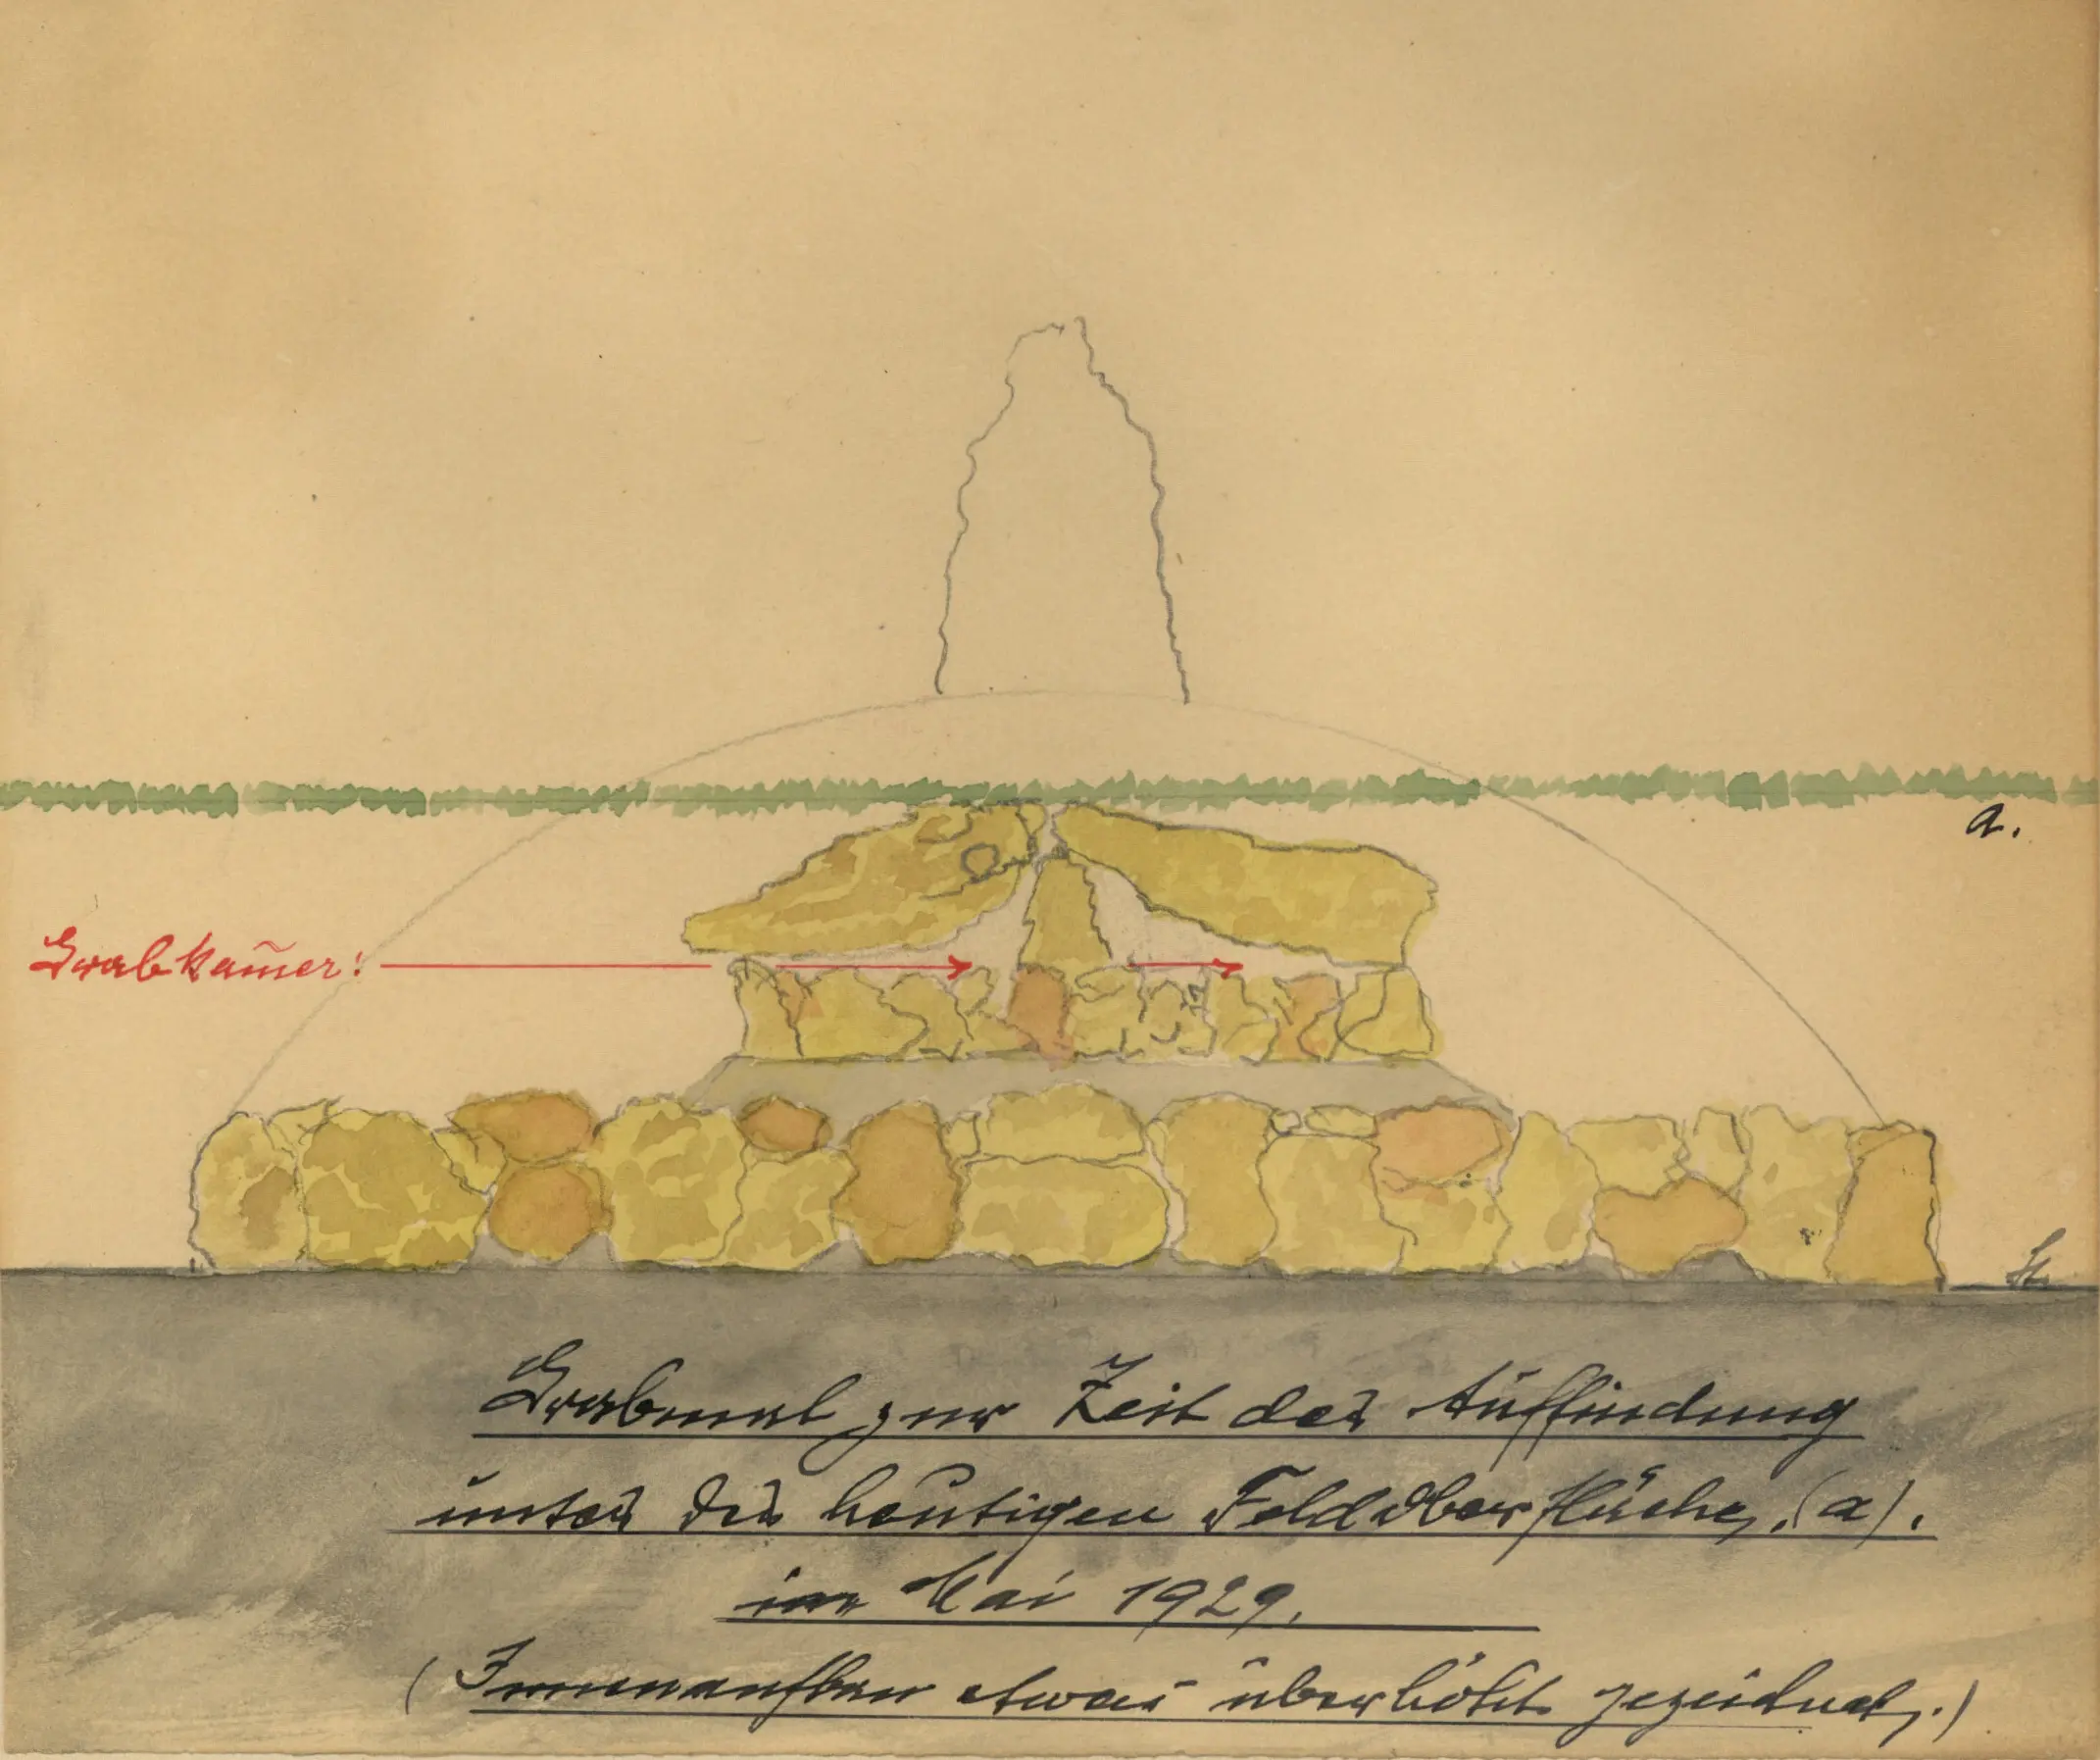 a.
Grabkam̄er:
St.
Grabmal zur Zeit der Auffindung
unter der heutigen Feldoberfläche, (a).
im Mai 1929.
(Innenaufbau etwas überhöht gezeichnet.)